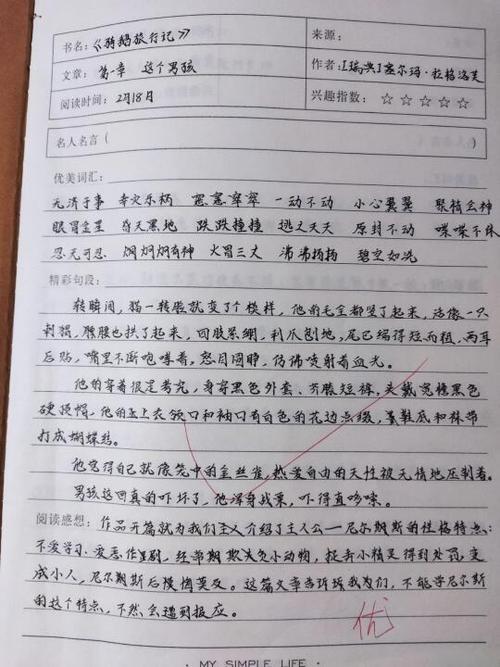 书名：《骑鹅旅行记》 来源：
文章：第一章 这个男孩 作者：[瑞典]塞尔玛·拉格洛芙
阅读时间：2月18日 兴趣指数：☆☆☆☆☆
名人名言（
优美词汇：
无济于事 幸灾乐祸 窸窸窣窣 一动不动 小心翼翼 聚精会神
眼冒金星 昏天黑地 跌跌撞撞 逃之夭夭 原封不动 喋喋不休
忍无可忍 炯炯有神 火冒三丈 沸沸扬扬 碧空如洗
精彩句段：
转瞬间，猫一转脸就变了个模样，他的毛全都竖了起来，活像一只
刺猬，腰也拱了起来，四肢紧绷，利爪刨地，尾巴缩得短而粗，两耳
后贴，嘴里不断咆哮着，怒目圆睁，仿佛喷射着血光。
他的穿着很是考究，身穿黑色外套、齐膝短裤，头戴宽檐黑色
硬顶帽，他的上衣领口和袖口有白色的花边点缀，鞋底和袜带
打成蝴蝶结。
他觉得自己就像笼中的金丝雀，热爱自由的天性被无情地压制着。
男孩这回真的吓坏了，他浑身战栗，吓得直哆嗦。
阅读感想：作品开篇就为我们介绍了主人公—尼尔斯的性格特点：
不爱学习、恶作剧，经常欺负小动物，捉弄小精灵得到处罚，变
成小人，尼尔斯后悔莫及。这篇文章告诉我们，不能学尼尔斯
的这个特点，不然会遭到报应。
优
· MY SIMPLE LIFE ·